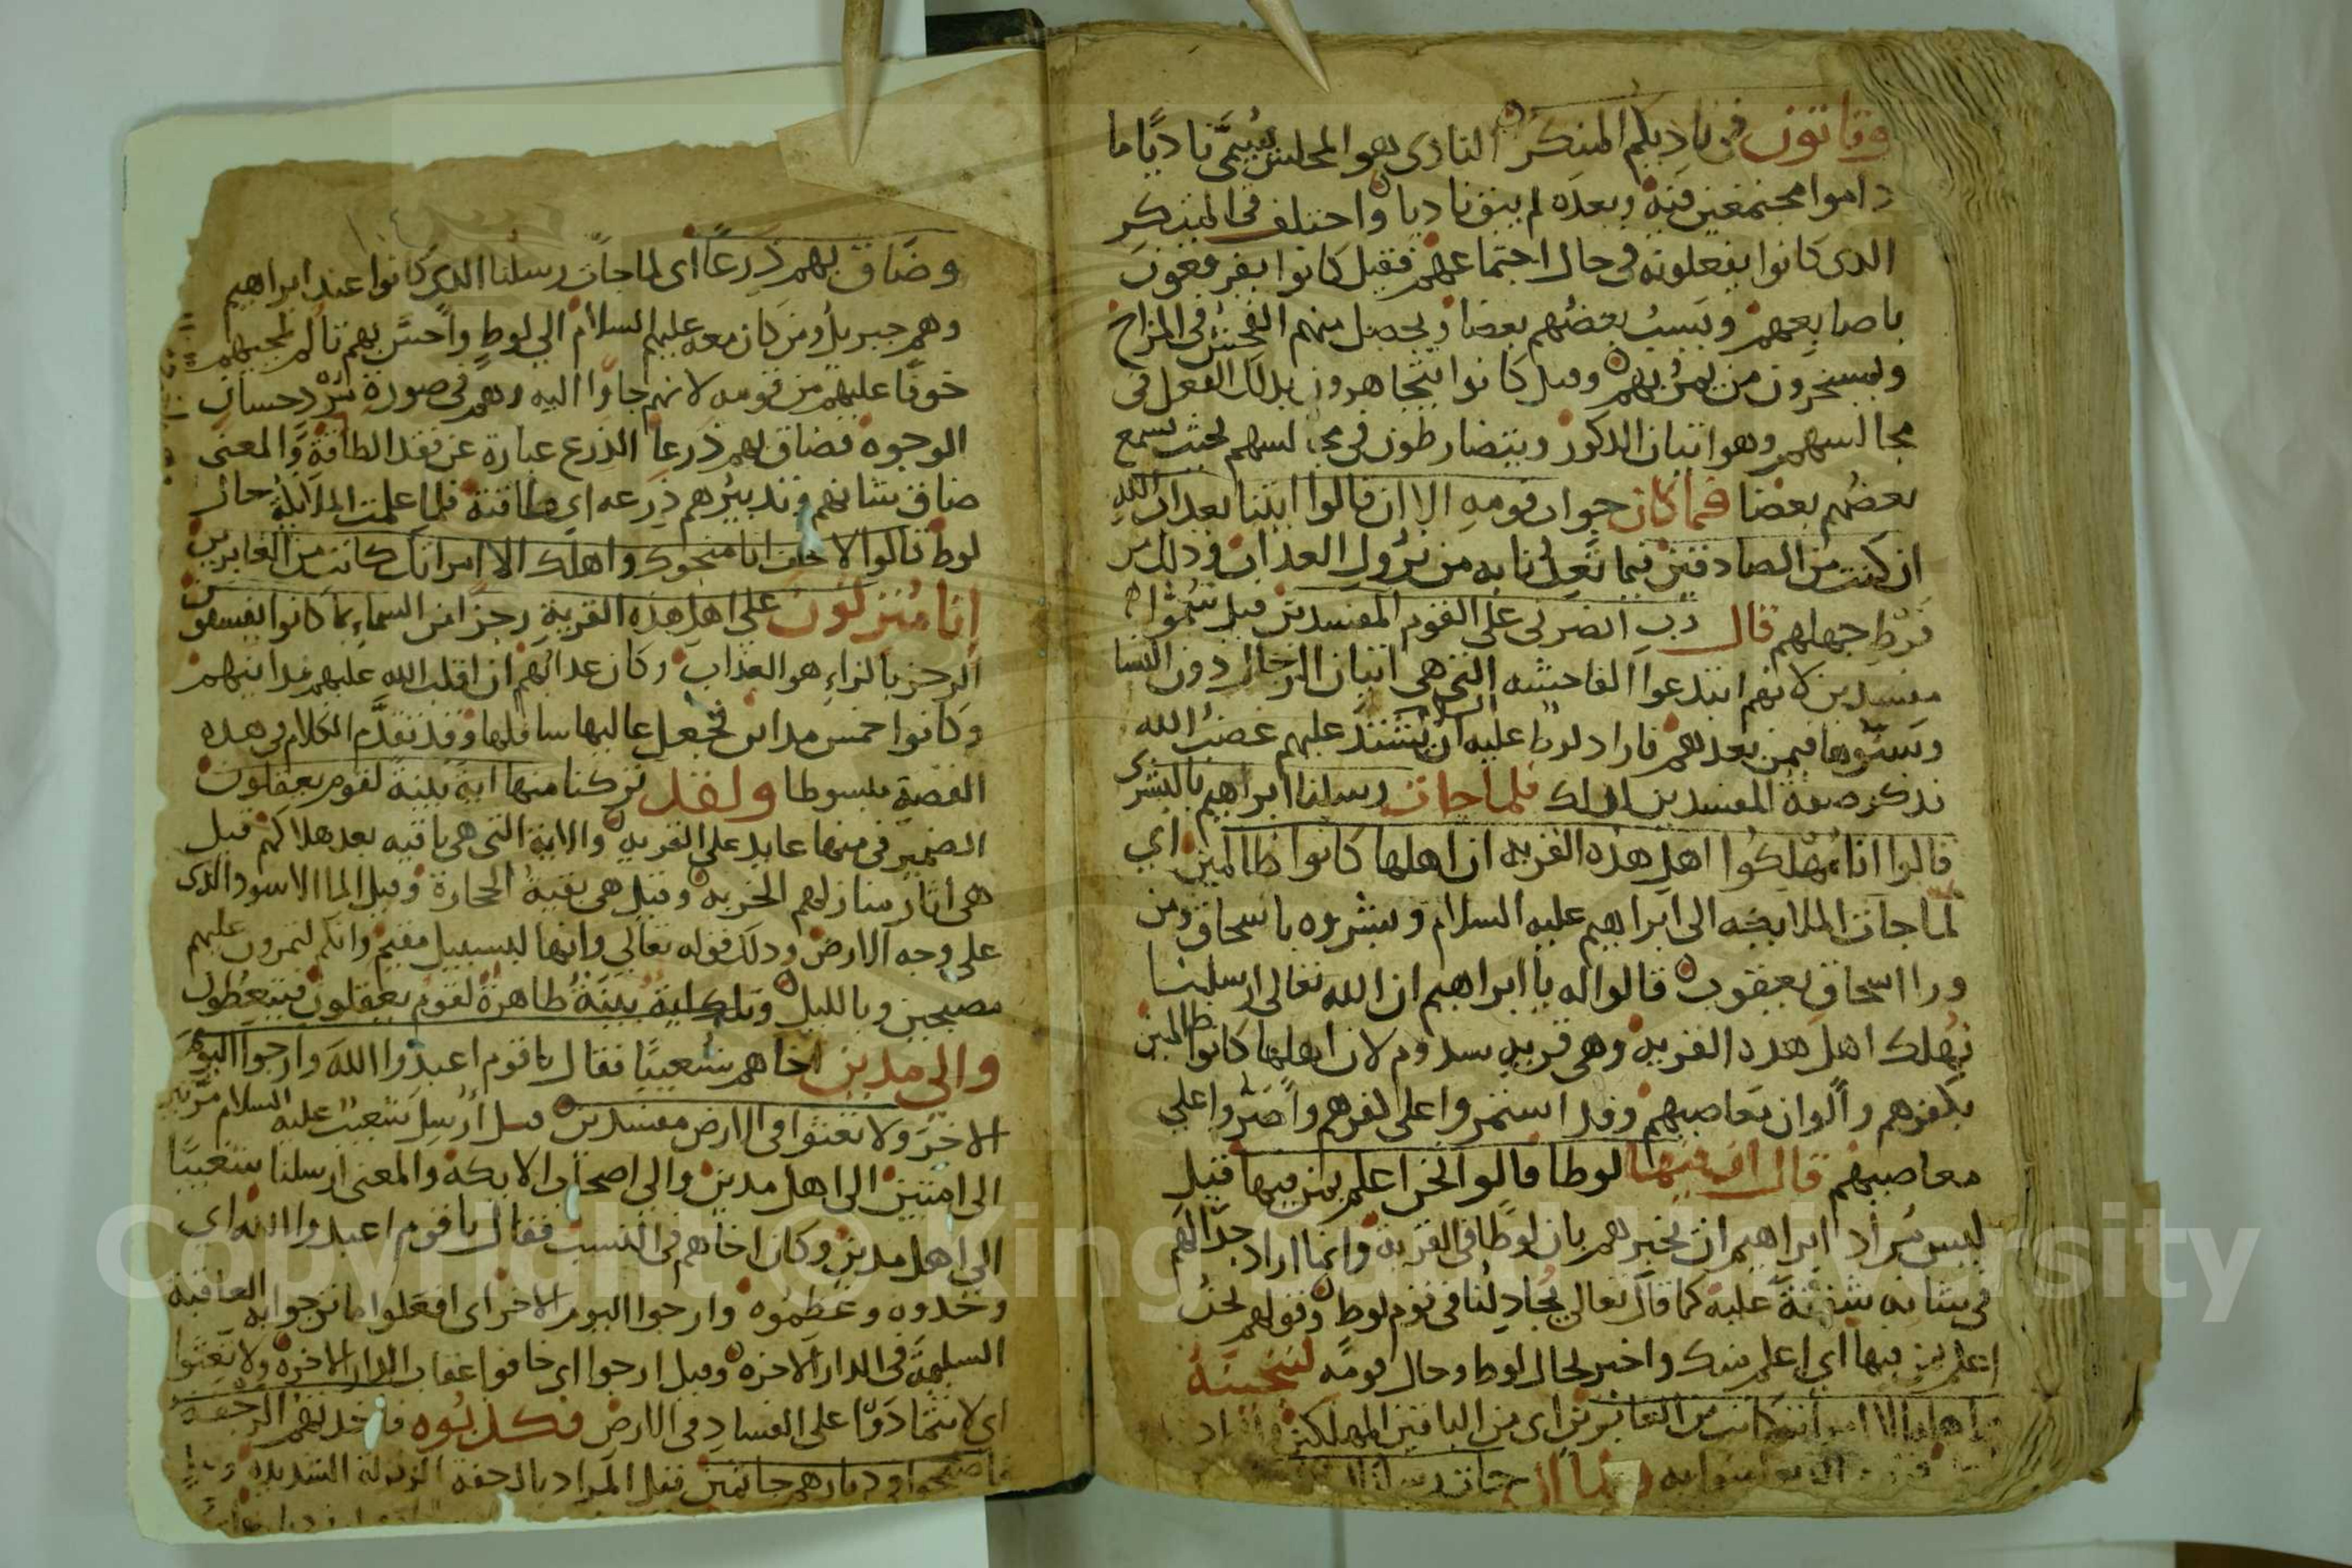 وتاتون في ناديكم المنكر النادي هو المجلس يُسمَّى ناديًا ما
داموا مجتمعين فيه وبعده لم يبق ناديا واختلف في المنكر
الذى كانوا يفعلونه في حال اجتماعهم فقيل كانوا يفرقعون
باصابعهم ويسبُ بعضُهم بعضا ويحصل منهم الفحش في المزاح
ويسخرون من يمرُ بهم وقيل كانوا يتجاهرون بذلك الفعل في
مجالسهم وهو اتيان الذكور ويتضارطون في مجالسهم بحيث يسمع
بعضُهم بعضا فما كان جواب قومه الا ان قالوا ايتنا بعذاب الله
ان كنت من الصادقين فيما تعِدنا به من نزول العذاب وذلك من
فرطِ جهلهم قال رب انصرني على القوم المفسدين قيل سُمُّوا
مفسدين لانهم ابتدعوا الفاحشه التي هي اتيان الرجال دون النسا
وسَنُّوها فيمن بعدهم فاراد لوط عليه السلام ان يشتد عليهم غضبُ الله
بذكر صفة المفسدين لذلك فلما جات رسلنا ابراهيم بالبشرى
قالوا انا مُهلِكُوا اهلِ هذه القريه ان اهلها كانوا ظالمين اي
لمّا جات الملايكه الى ابراهيم عليه السلام وبشروه باسحاق ومن
ورا اسحاق يعقوب قالوا له يا ابراهيم ان الله تعالى ارسلنا
نهلك اهل هذه القريه وهي قريه سدوم لان اهلها كانوا ظالمين
بكفرهم والوان معاصيهم وقد استمروا على كفرهم واصَرُّوا على
معاصيهم قال ان فيها لوطا قالوا نحن اعلم بمن فيها قيل
ليس مُراد ابراهيم ان يخبرهم بان لوطًا في القريه وانما اراد جدالهم
في شانه شفقةً عليه كما قال تعالى يُجادِلُنا في قوم لوط وقولهم نحنُ
اعلم بمن فيها اي اعلم منك واخبر بحال لوط وحال قومه لننجينهُ
واهله الا امراته كانت من الغابرين اي من الباقين المهلكين
ولما ان جات رسلنا
وضَاق بهم ذرعًا اى لما جات رسلنا الذى كانوا عند ابراهيم
وهم جبريل ومن كان معه عليهم السلام الي لوطٍ واحسَّ بهم تألم لمجيهم
خوفًا عليهم من قومه لانهم جاوا اليه وهم في صورة مُرْدٍ حسان
الوجوه فضاق بهم ذرعا الذرع عبارة عن فقد الطاقة والمعنى
ضاق بشانهم وتدبيرهم ذرعه اي طاقته فلما علمت الملايكة حال
لوط قالوا لا تخف انا منجوك واهلك الا امراتك كانت من الغابرين
انا مُنزلُون على اهل هذه القرية رجزا من السماء بما كانوا يفسقون
الرجز بالزاء هو العذاب وكان عذابُهم ان اقلب الله عليهم مداينهم
وكانوا خمس مداين فجعل عاليها سافلها وقد تقدَّم الكلام في هذه
القصة مبسوطا ولقد تركنا منها اية بينة لقوم يعقلون
الضمير في منها عايد على القريه والاية التي هي باقيه بعد هلاكهم قيل
هي آثار منازلهم الخربه وقيل هي بقية الحجارة وقيل الما الاسود الذى
على وجه الارض وذلك قوله تعالى وانها لبسبيل مقيم وانكم لتمرون عليهم
مصبحين وبالليل وبينةُ ظاهرةٌ لقوم يعقلون فيتعظون
والي مدين اخاهم شُعيبًا فقال يا قوم اعبدوا اللهَ وارجوا اليوم
الاخرَ ولا تعثوا في الارض مفسدين قيل أُرسِل شعيبٌ عليه السلام مرتين
الى امتين الى اهل مدين والي اصحاب الايكة والمعنى ارسلنا شعيبًا
الي اهل مدين وكان اخاهم في النسب فقال يا قوم اعبدوا الله اي
وحدوه وعظمُوه وارجوا اليوم الاخر اى افعلوا ما ترجوا به العاقبة
السليمة في الدار الاخره وقيل ارجوا اى خافوا عقاب الدار الاخرة ولا تعثوا
اي لا تتمادَوْا على الفساد في الارض فكذبُوه فاخذتهم الرجفة
فاصبحوا في دارهم جاثمين فقيل المراد بالرجفة الزلزلة الشديدة
Copyright © King Saud University